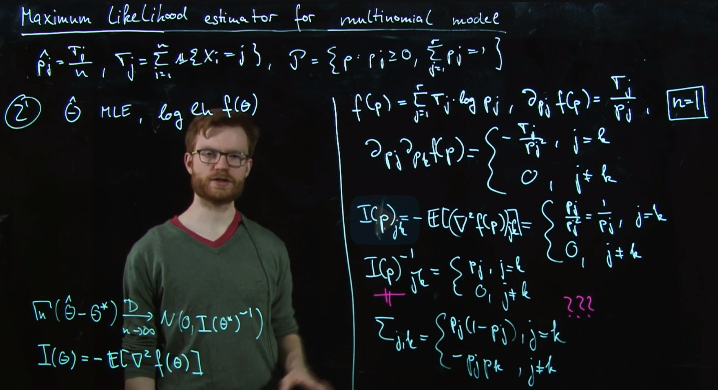 Maximum Likelihood estimator for multinomial model
p̂_j = T_j/n , T_j = Σ_{i=1}^n 1{X_i = j} , P = {p : p_j ≥ 0, Σ_{j=1}^r p_j = 1}
(2) θ̂ MLE, log lh f(θ)
√n (θ̂ - θ*) →^D_{n→∞} N(0, I(θ*)^{-1})
I(θ) = -E[∇² f(θ)]
f(p) = Σ_{j=1}^r T_j · log p_j , ∂_{p_j} f(p) = T_j/p_j , n=1
∂_{p_j} ∂_{p_k} f(p) = { -T_j/p_j² , j=k
0 , j≠k
I(p)_{jk} = -E[(∇² f(p))_{jk}] = { p_j/p_j² = 1/p_j , j=k
0 , j≠k
I(p)^{-1}_{jk} = { p_j , j=k
0 , j≠k
≠ ???
Σ_{j,k} = { p_j(1-p_j) , j=k
-p_j p_k , j≠k